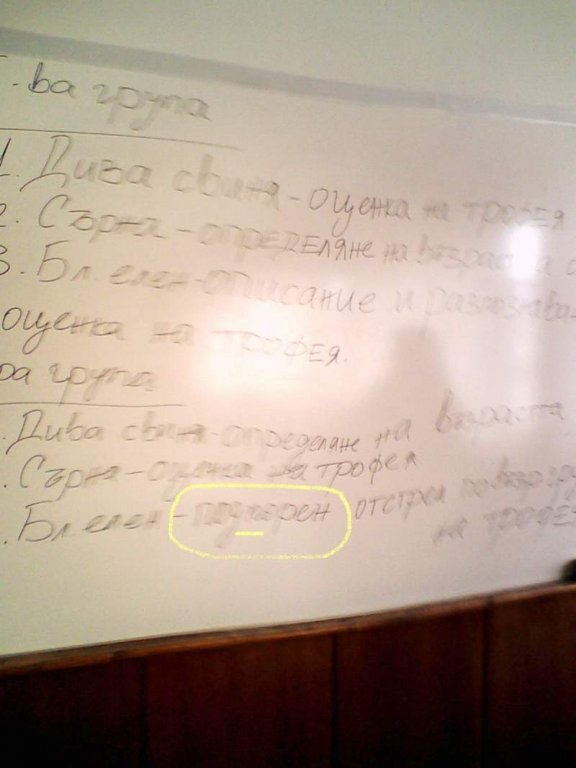 I-ва група
1. Дива свиня - оценка на трофея
2. Сърна - определяне на възраста
3. Бл. елен - описание и разпознава-
оценка на трофея.
ра група
. Дива свиня - определяне на възраста
. Сърна - оценка на трофея
. Бл. елен - отстрел по
на трофея